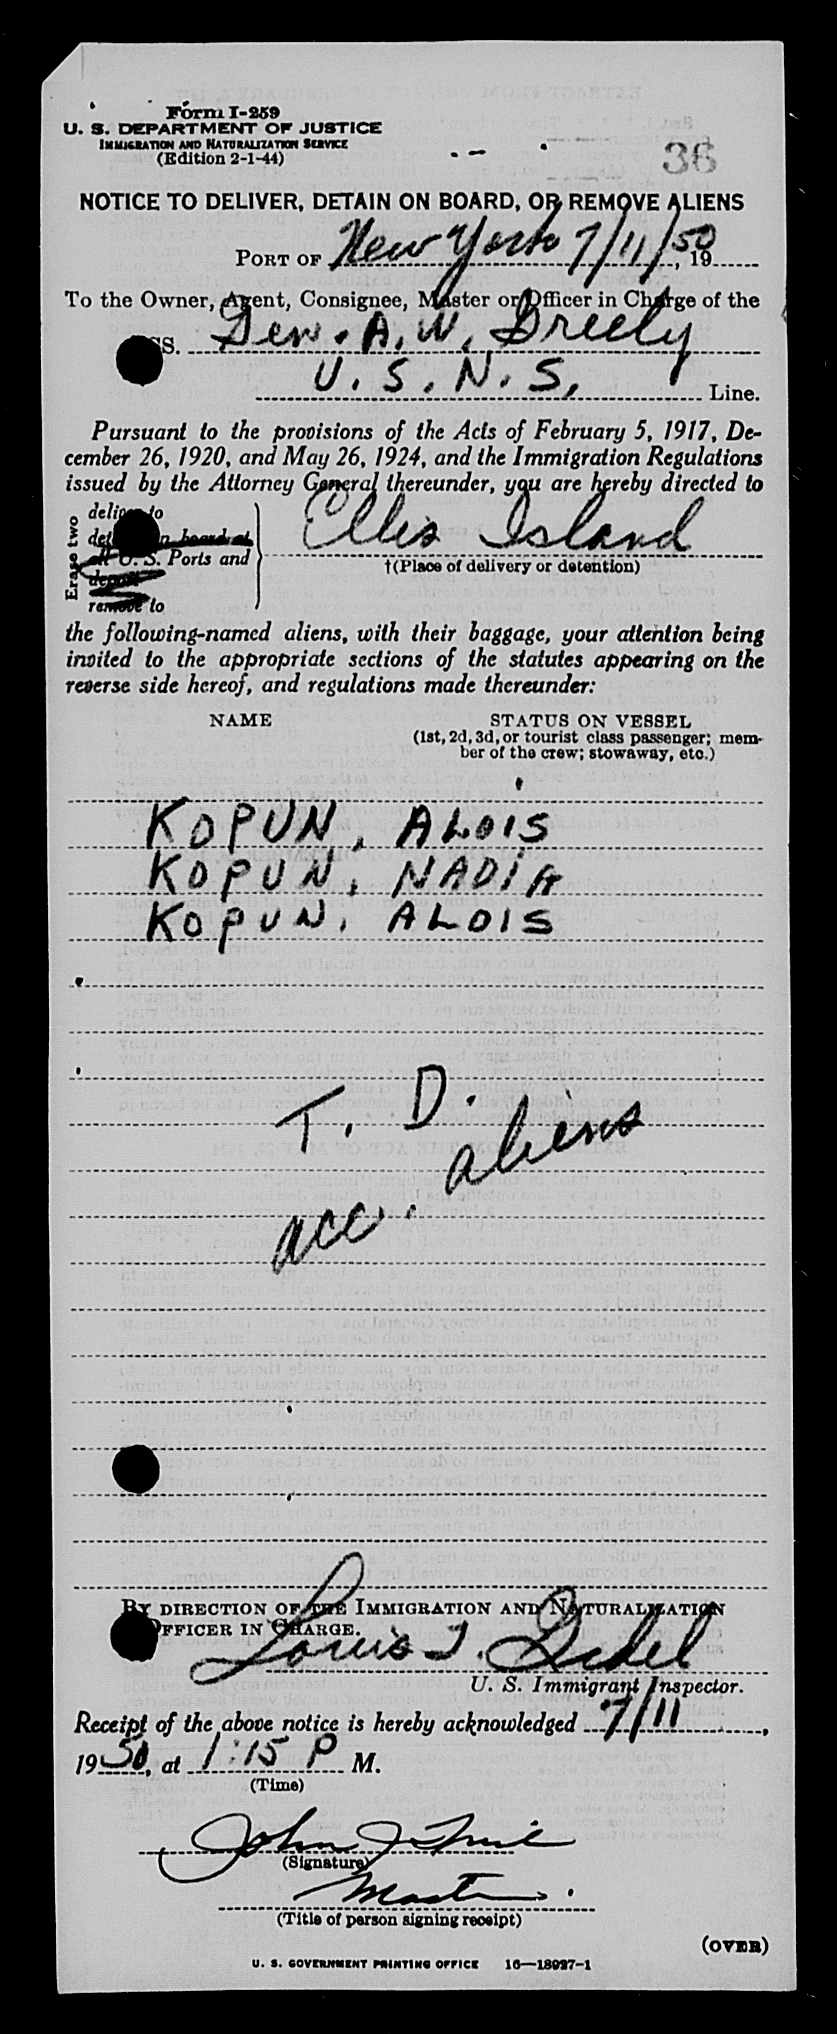 Form I-259
U. S. DEPARTMENT OF JUSTICE
IMMIGRATION AND NATURALIZATION SERVICE
(Edition 2-1-44)
36
NOTICE TO DELIVER, DETAIN ON BOARD, OR REMOVE ALIENS
PORT OF New York 7/11/50, 19
To the Owner, Agent, Consignee, Master or Officer in Charge of the
SS. Gen. A. W. Greely
U. S. N. S. Line.
Pursuant to the provisions of the Acts of February 5, 1917, De-
cember 26, 1920, and May 26, 1924, and the Immigration Regulations
issued by the Attorney General thereunder, you are hereby directed to
Erase two
deliver to
detain on board at
all U. S. Ports and
deport
remove to
Ellis Island
†(Place of delivery or detention)
the following-named aliens, with their baggage, your attention being
invited to the appropriate sections of the statutes appearing on the
reverse side hereof, and regulations made thereunder:
NAME STATUS ON VESSEL
(1st, 2d, 3d, or tourist class passenger; mem-
ber of the crew; stowaway, etc.)
KOPUN, ALOIS
KOPUN, NADIA
KOPUN, ALOIS
T. D.
acc. aliens
BY DIRECTION OF THE IMMIGRATION AND NATURALIZATION
OFFICER IN CHARGE.
Louis J.
U. S. Immigrant Inspector.
Receipt of the above notice is hereby acknowledged 7/11,
1950, at 1:15 P M.
(Time)
John J
(Signature)
Master.
(Title of person signing receipt)
(OVER)
U. S. GOVERNMENT PRINTING OFFICE 16—18927-1